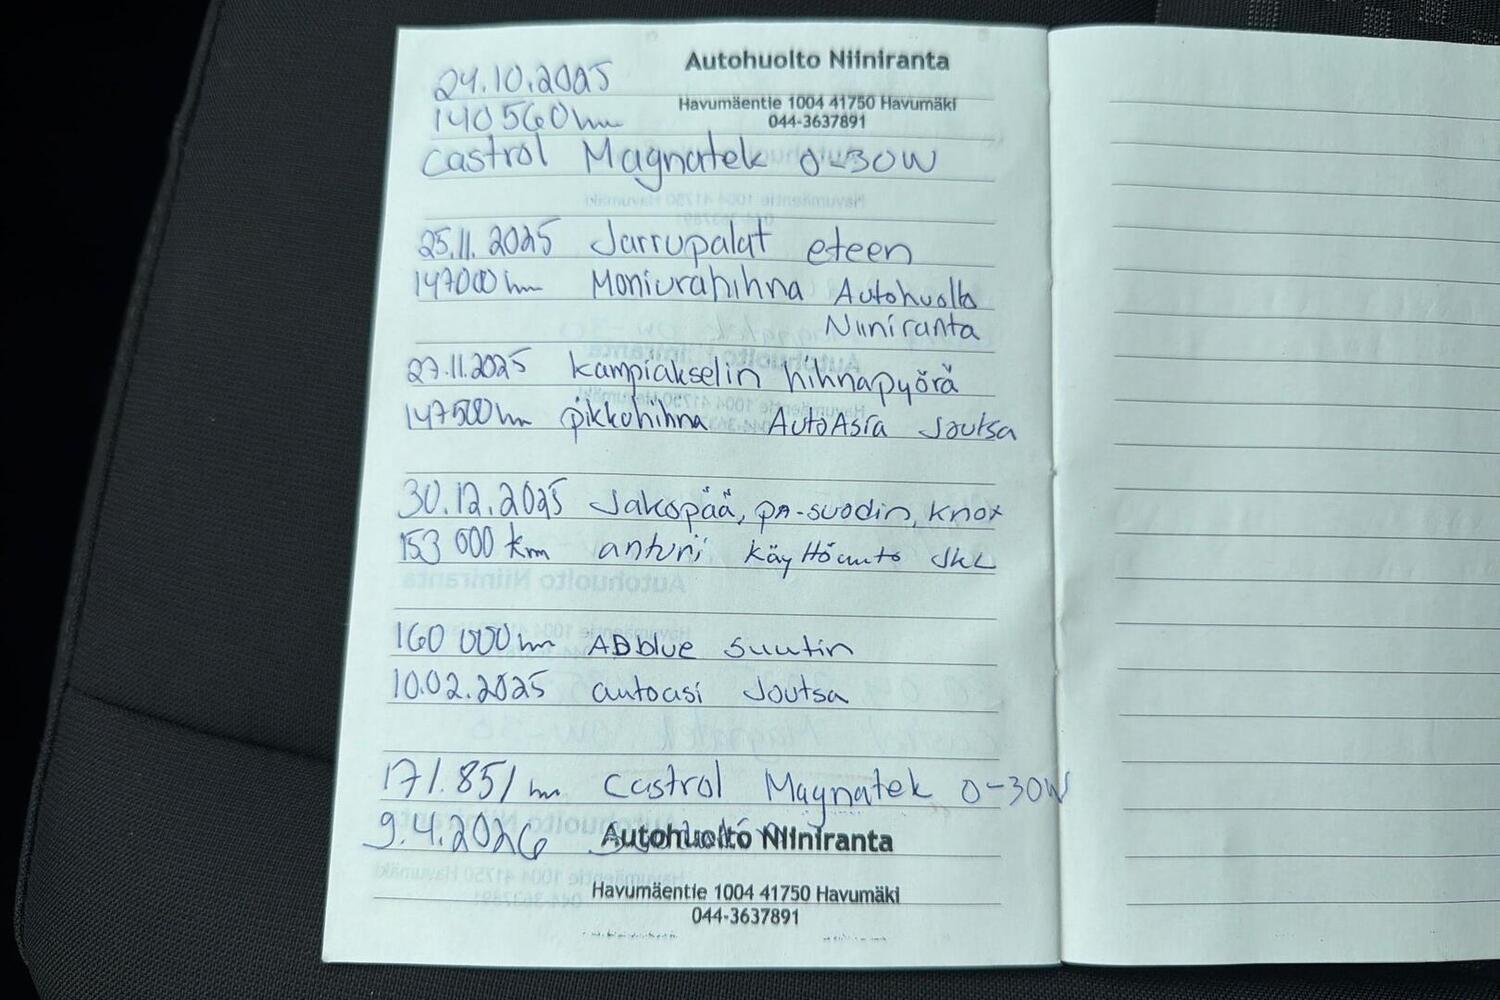 24.10.2025
Autohuolto Niiniranta
Havumäentie 1004 41750 Havumäki
044-3637891
140560 km
Castrol Magnatek 0-30W
25.11.2025 Jarrupalat eteen
147000 km Moniurahihna Autohuolto
Niiniranta
27.11.2025 kampiakselin hihnapyörä
147500 km pikkuhihna AutoAsia Joutsa
30.12.2025 Jakopää, pa-suodin, knox
153 000 km anturi käyttöauto JKL
160 000 km ADblue suutin
10.02.2025 autoasi Joutsa
171.851 km Castrol Magnatek 0-30W
9.4.2026
Autohuolto Niiniranta
Havumäentie 1004 41750 Havumäki
044-3637891